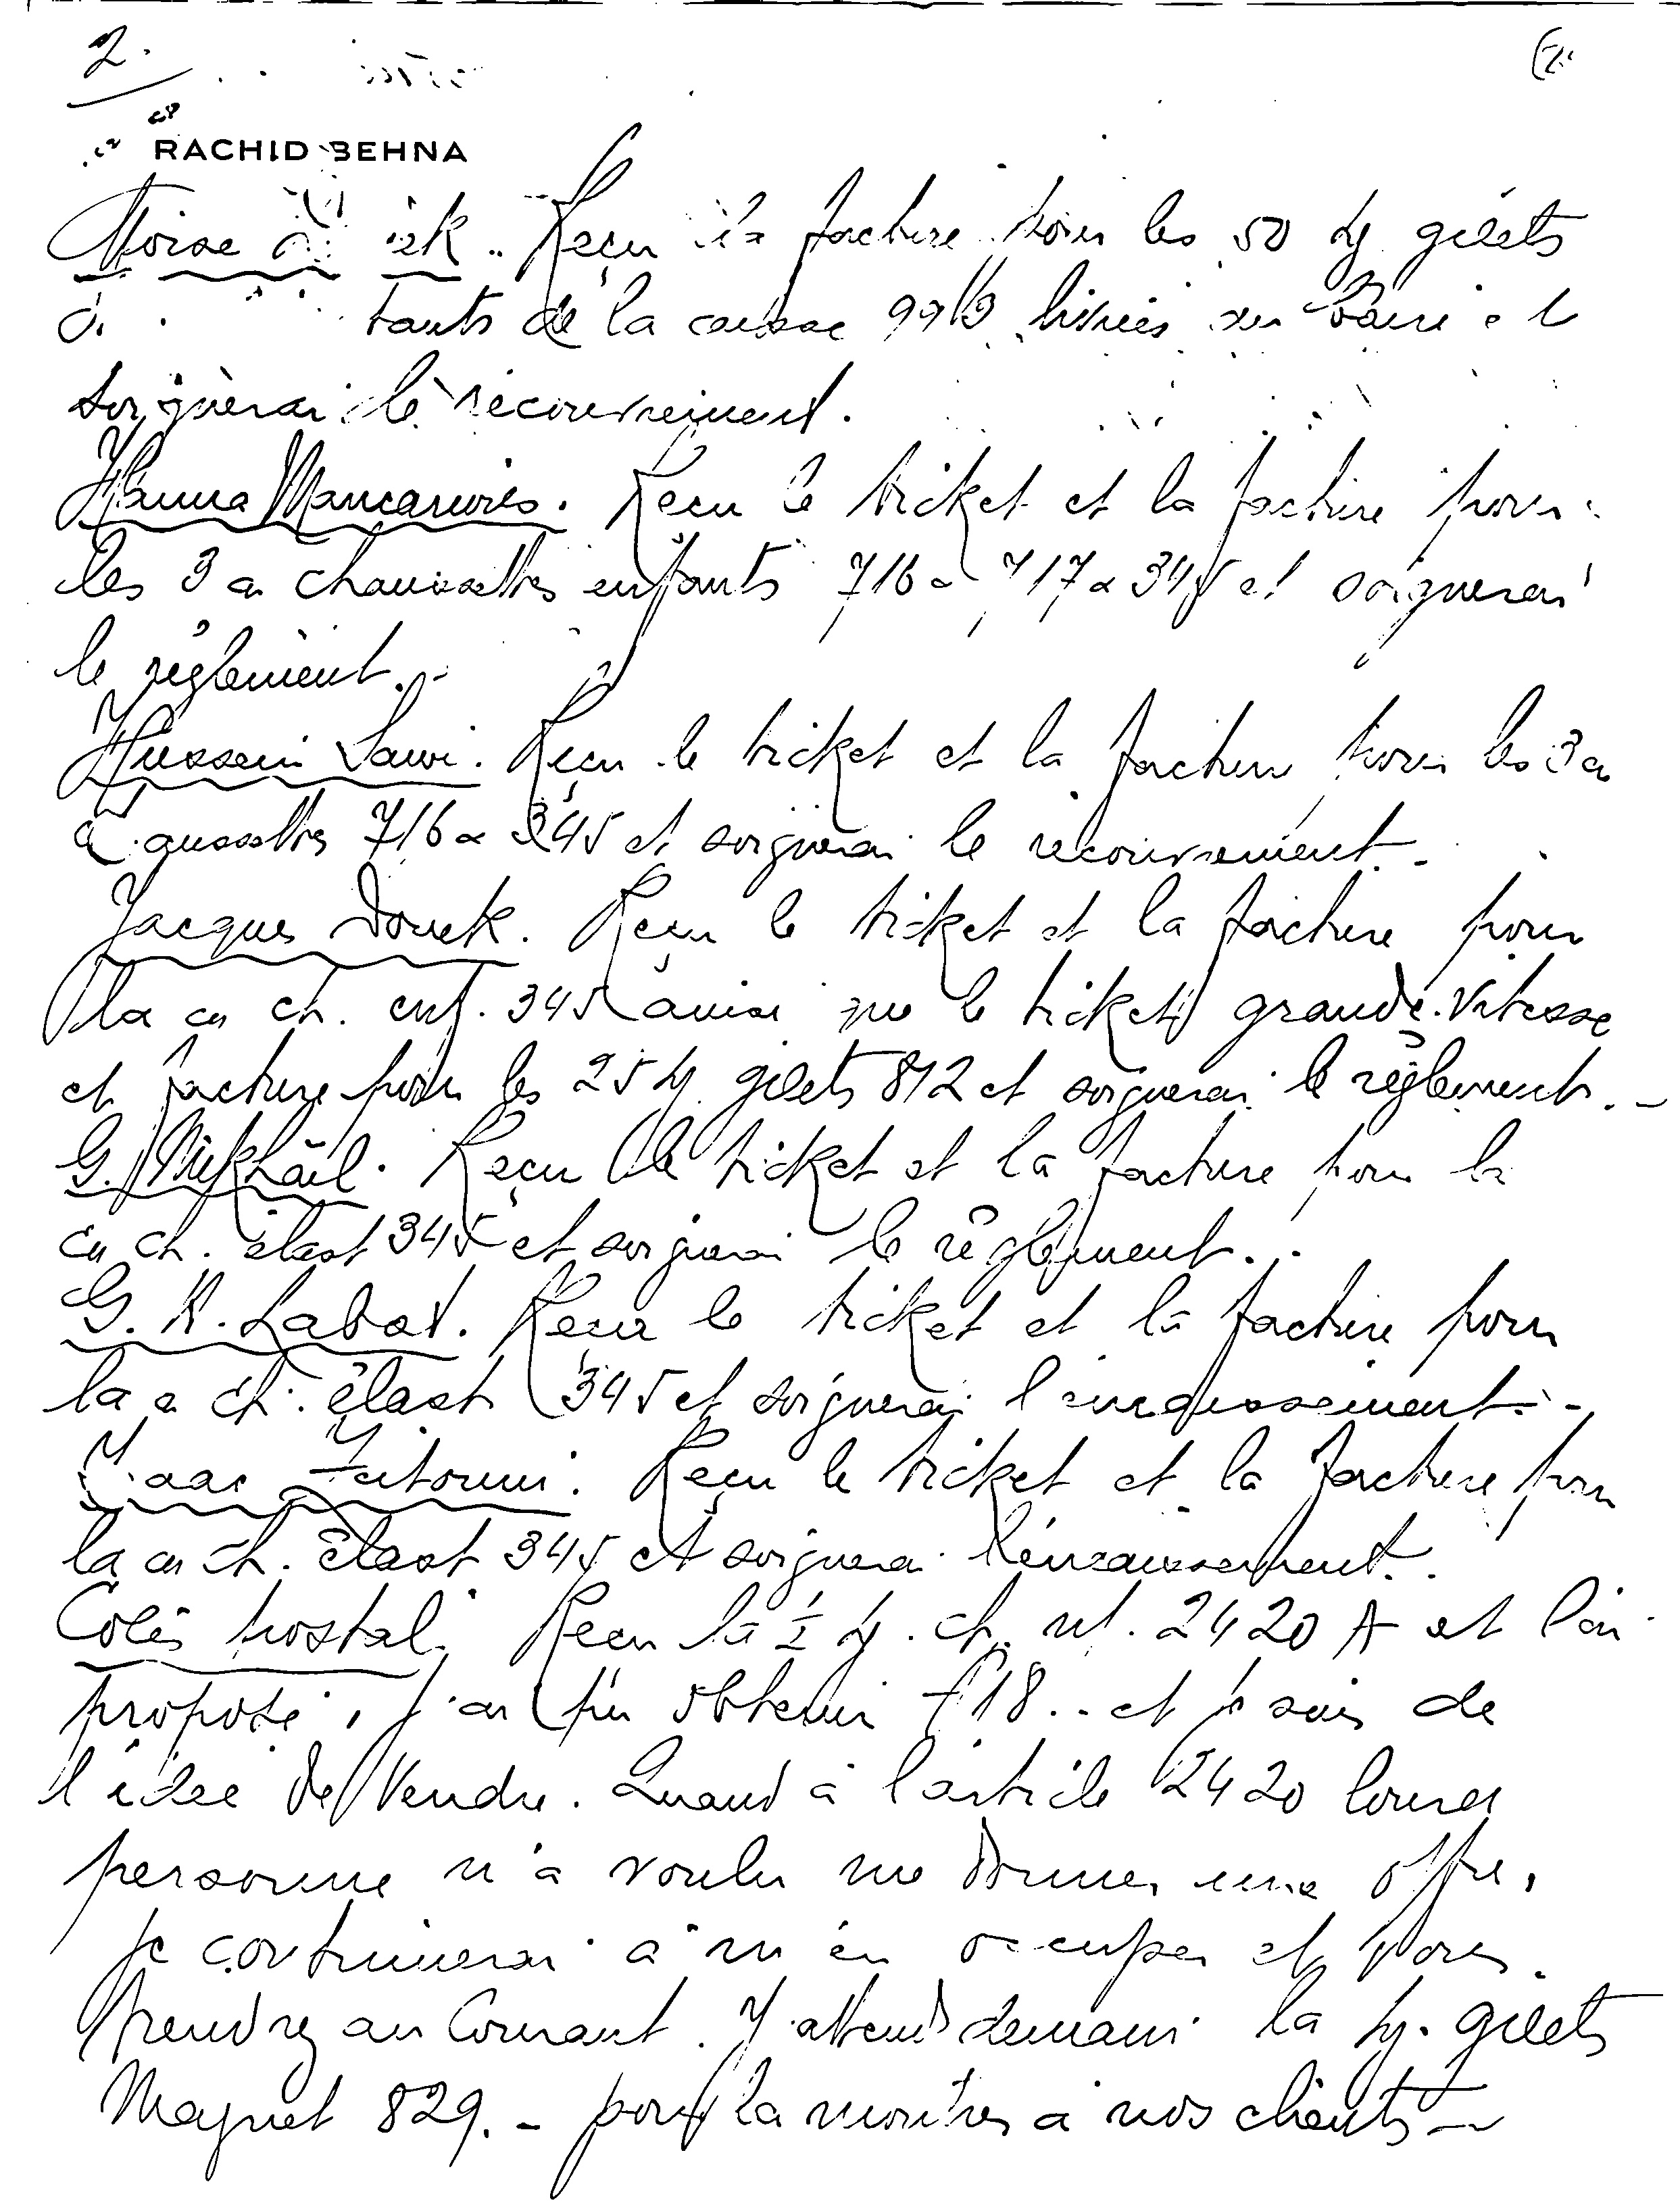 2.
RACHID BEHNA
Moise Reçu la facture pour les 50 gilets
de la caisse livrées au et
soignerai le recouvrement.
Hanna Mancarios. Reçu le ticket et la facture pour
les 3 cs chaussettes enfants 716 à 717 à 345 et soignerai
le règlement.-
Hussein Sawi. Reçu le ticket et la facture pour les 3 cs
716 à 345 et soignerai le recouvrement.-
Jacques Douek. Reçu le ticket et la facture pour
la cs ch. enf. 345 ainsi que le ticket grande Vitesse
et facture pour les 25 gilets 812 et soignerai le règlement.-
G. Mikhaïl. Reçu le ticket et la facture pour la
cs ch. élast 345 et soignerai le règlement.-
G. N. Labad. Reçu le ticket et la facture pour
la cs ch. élast 345 et soignerai l'encaissement.-
Isaac Reçu le ticket et la facture pour
la cs ch. élast 345 et soignerai l'encaissement.
Colis postal. Reçu la ½ ch. 2420 A et l'ai
proposé, j'ai pu obtenir £18.. et je suis de
l'idée de Vendre. Quand à l'article 2420
personne n'a voulu me donner une offre,
je continuerai à m'en occuper et vous
tiendrez au Courant. J'attend demain la gilets
Magnet 829.- pour la montrer à nos clients